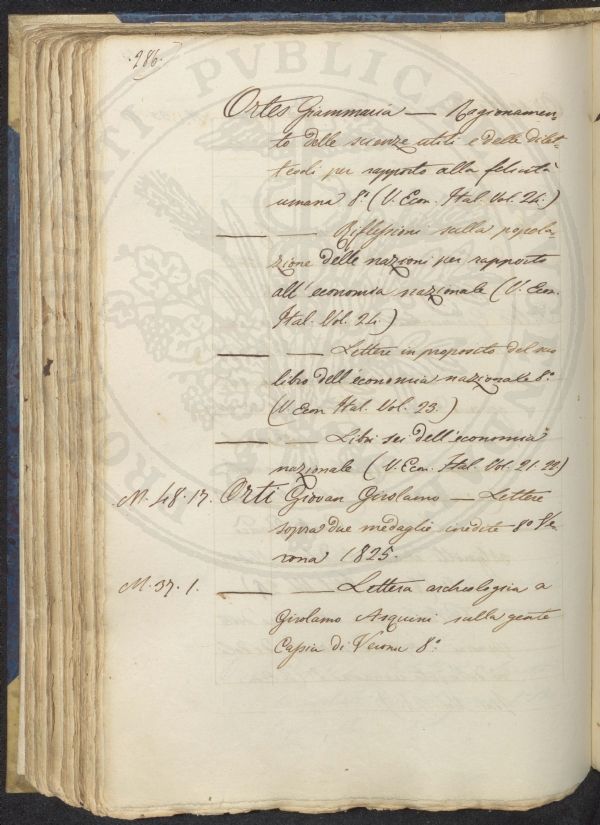 286.
Ortes Giammaria — Ragionamen-
to delle scienze utili e delle dilet-
tevoli per rapporto alla felicità
umana 8.° (V. Econ. Ital. Vol. 24.)
— — Riflessioni sulla popola-
zione delle nazioni per rapporto
all'economia nazionale (V. Econ.
Ital. Vol. 24.)
— — Lettere in proposito del suo
libro dell'economia nazionale 8.°
(V. Econ Ital. Vol. 23.)
— — Libri sei dell'economia
nazionale (V. Econ. Ital. Vol. 21. 22.)
M. 48. 17. Orti Giovan Girolamo — Lettere
sopra due medaglie inedite 8.° Ve-
rona 1825.
M. 37. 1. — — Lettera archeologica a
Girolamo Asquini sulla gente
Cassia di Verona 8.°